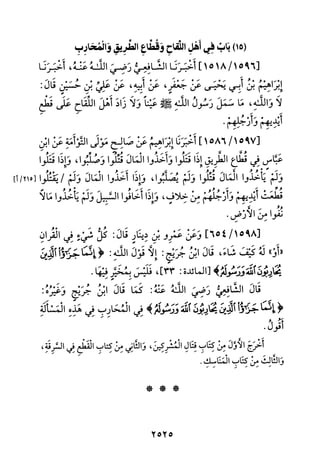 (١٥) بَابٌ فِي أَهْلِ اللِّقَاحِ وَقُطَّاعِ الطَّرِيقِ وَالْمُحَارِبِ
[١٥٩٦/ ١٥١٨] أَخْبَرَنَا الشَّافِعِيُّ رَضِيَ اللَّهُ عَنْهُ، أَخْبَرَنَا
إِبْرَاهِيْمُ بْنُ أَبِي يَحْيَى عَنْ جَعْفَرٍ، عَنْ أَبِيهِ، عَنْ عَلِيِّ بْنِ حُسَيْنٍ قَالَ:
لَا وَاللَّهِ، مَا سَمَلَ رَسُولُ اللَّهِ ﷺ عَيْناً وَلَا زَادَ أَهْلَ اللِّقَاحِ عَلَى قَطْعِ
أَيْدِيهِمْ وَأَرْجُلِهِمْ.
[١٥٩٧/ ١٥٨٦] أَخْبَرَنَا إِبْرَاهِيمُ عَنْ صَالِحٍ مَوْلَى التَّوْأَمَةِ عَنْ ابْنِ
عَبَّاسٍ فِي قُطَّاعِ الطَّرِيقِ إِذَا قَتَلُوا وَأَخَذُوا الْمَالَ قُتِلُوا وَصُلِّبُوا، وَإِذَا قَتَلُوا
وَلَمْ يَأْخُذُوا الْمَالَ قُتِلُوا وَلَمْ يُصَلَّبُوا، وَإِذَا أَخَذُوا الْمَالَ وَلَمْ / يَقْتُلُوا [٢١٥/أ]
قُطِّعَتْ أَيْدِيهِمْ وَأَرْجُلُهُمْ مِنْ خِلَافٍ، وَإِذَا أَخَافُوا السَّبِيلَ وَلَمْ يَأْخُذُوا مَالاً
نُفُوا مِنَ الْأَرْضِ.
[١٥٩٨/ ٦٥٤] وَعَنْ عَمْرِو بْنِ دِينَارٍ قَالَ: كُلُّ شَيْءٍ فِي الْقُرْانِ
«أَوْ» لَهُ كَيْفَ شَاءَ، قَالَ ابْنُ جُرَيْجٍ: إِلَّا قَوْلَ اللَّهِ: ﴿إِنَّمَا جَزَاؤُا الَّذِينَ
يُحَارِبُونَ اللَّهَ وَرَسُولَهُ﴾ [المائدة: ٣٣]، فَلَيْسَ بِمُخَيَّرٍ فِيْهَا.
قَالَ الشَّافِعِيُّ رَضِيَ اللَّهُ عَنْهُ: كَمَا قَالَ ابْنُ جُرَيْجٍ وَغَيْرُهُ:
﴿إِنَّمَا جَزَاؤُا الَّذِينَ يُحَارِبُونَ اللَّهَ وَرَسُولَهُ﴾ فِي الْمُحَارِبِ فِي هَذِهِ الْمَسْأَلَةِ
أَقُولُ.
أَخْرَجَ الْأَوَّلَ مِنْ كِتَابِ قِتَالِ الْمُشْرِكِينَ، وَالثَّانِي مِنْ كِتابِ الْقَطْعِ فِي السَّرِقَةِ،
وَالثَّالِثَ مِنْ كِتَابِ الْمَنَاسِكِ.
* * *
٢٥٢٥